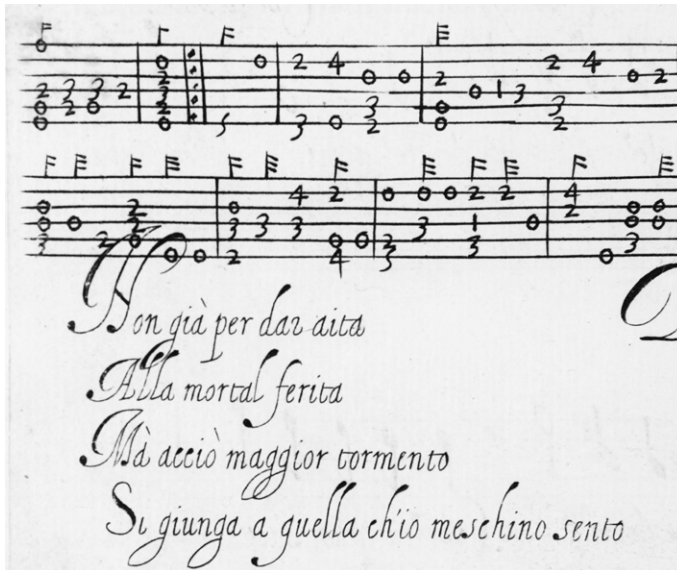 Non già per dar aita
Alla mortal ferita
Mà acciò maggior tormento
Si giunga a quella ch'io meschino sento